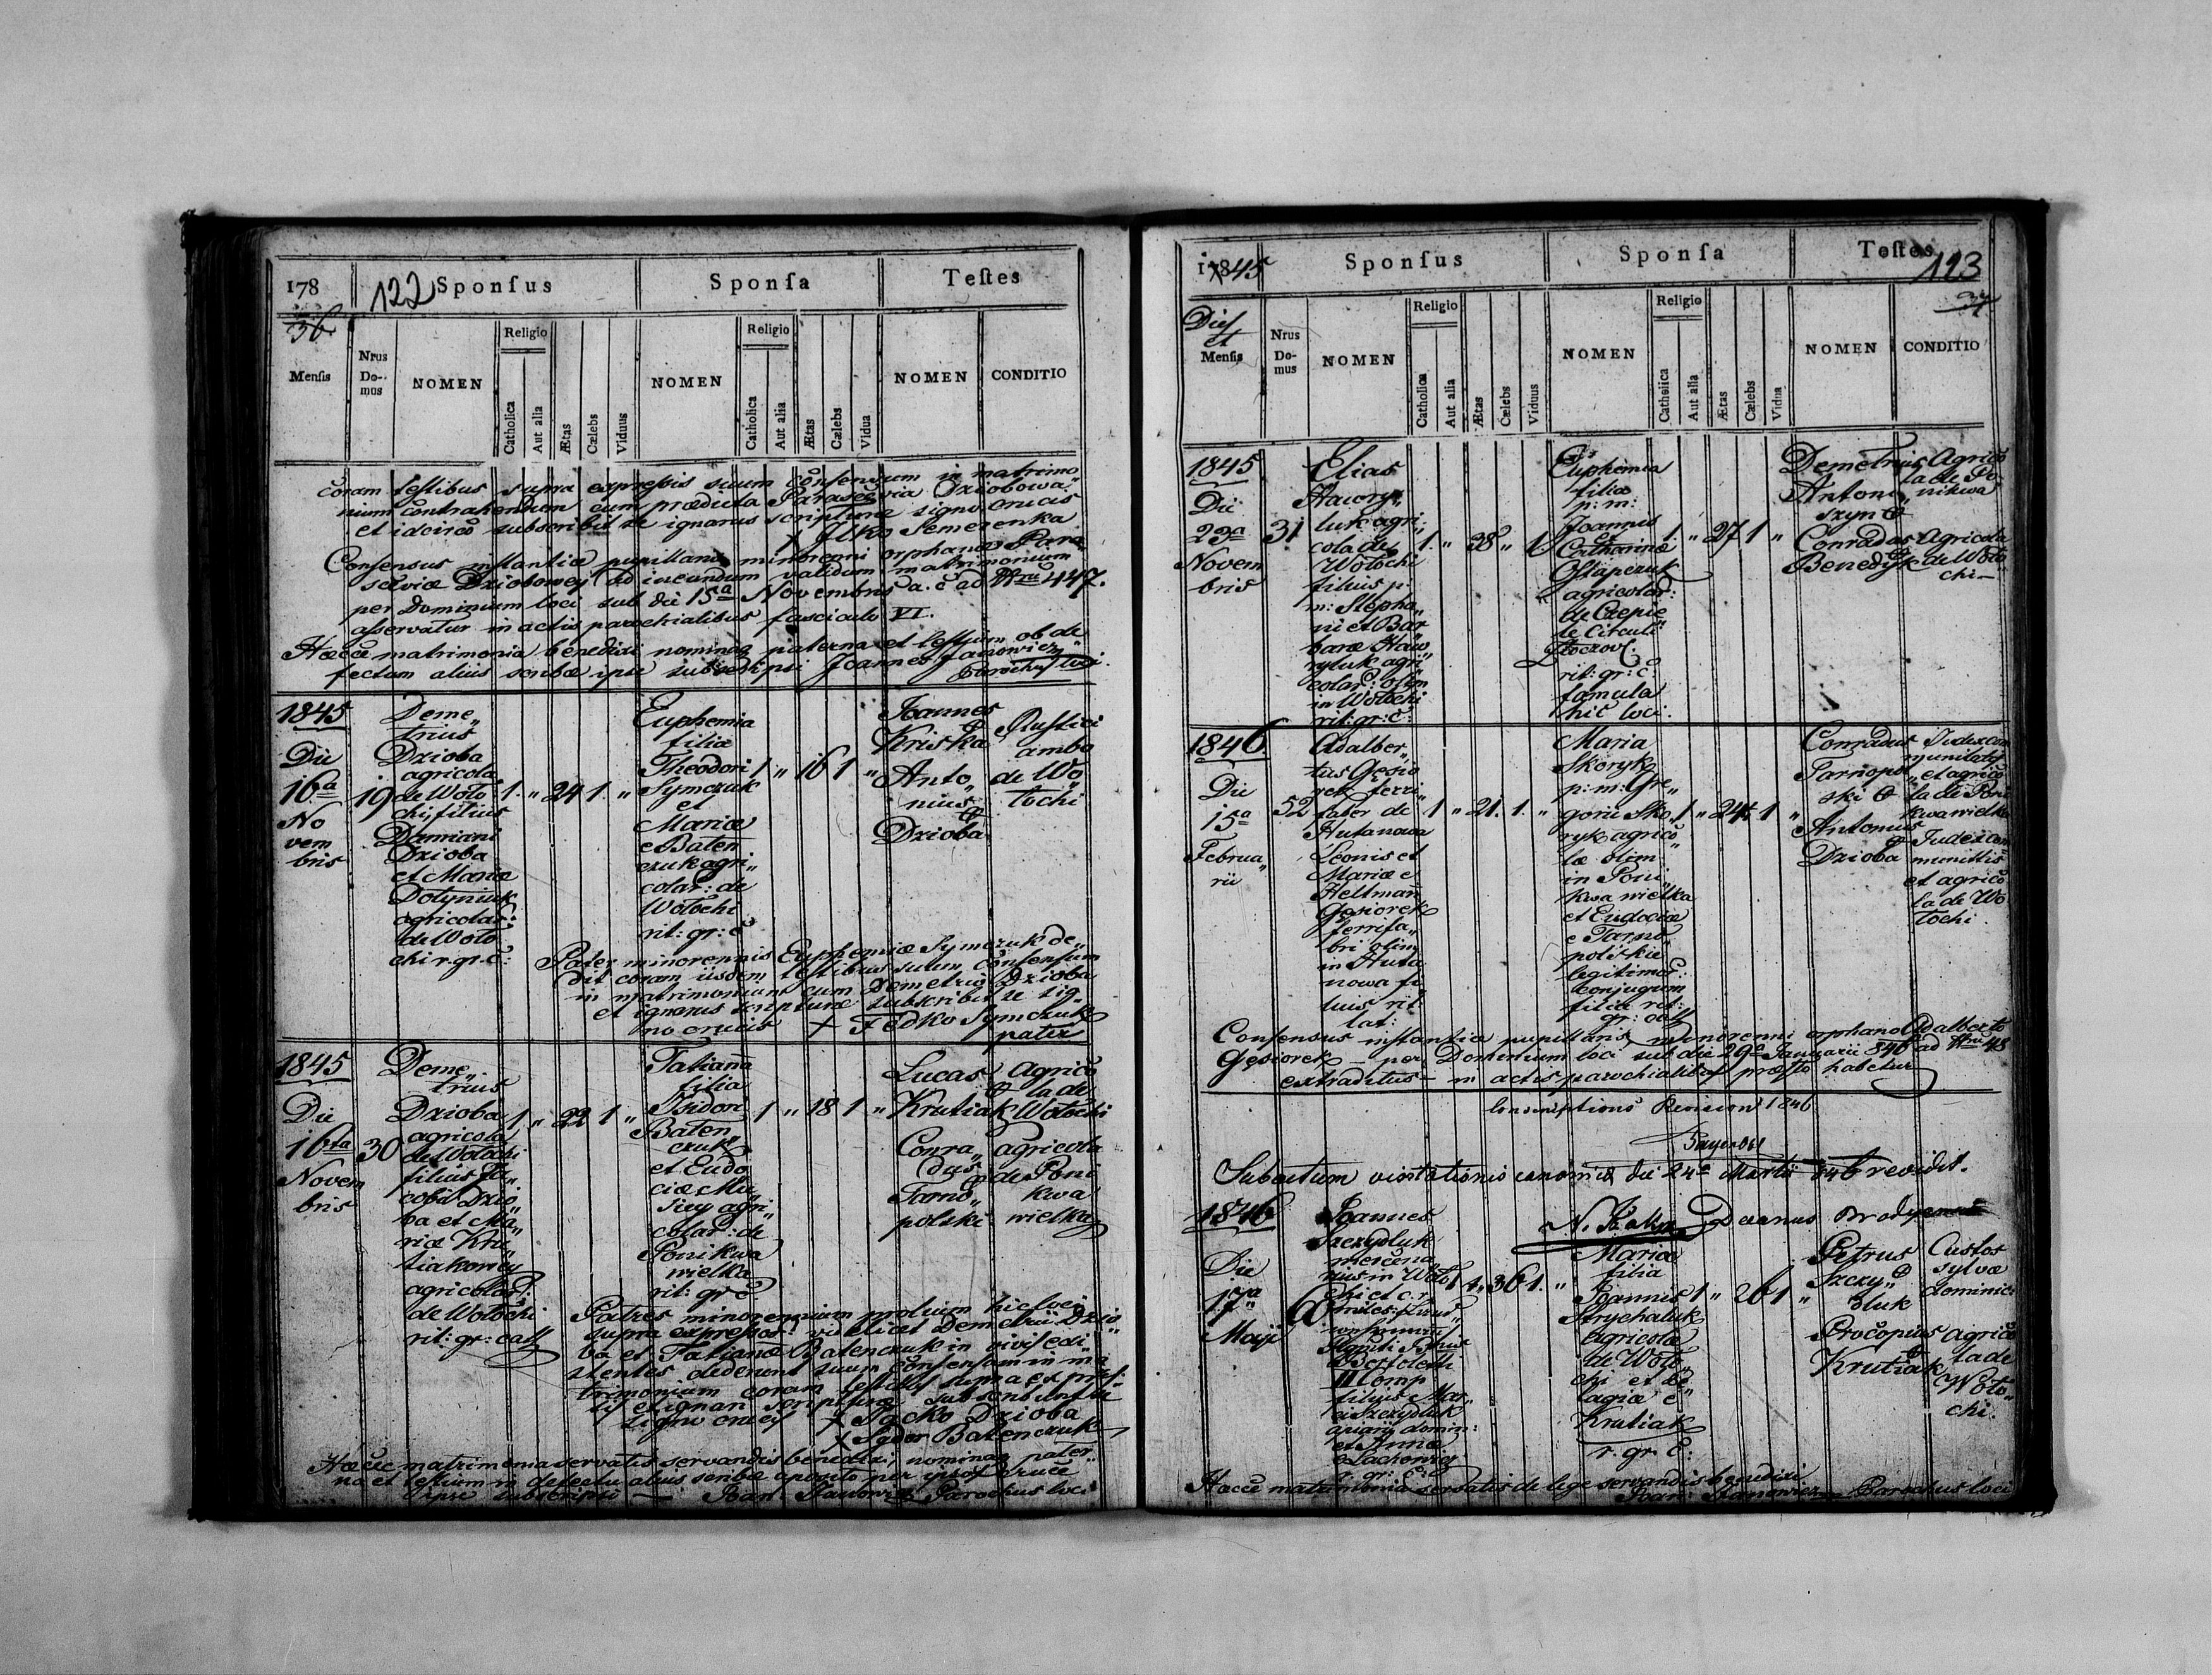 178
36
122 Sponſus
Sponſa
Teſtes
Menſis
Nrus Do- mus
NOMEN
Religio
Catholica
Aut alia
Ætas
Cælebs
Viduus
NOMEN
Religio
Catholica
Aut alia
Ætas
Cælebs
Vidua
NOMEN
CONDITIO
Coram testibus supra expressis suum consensum in matrimo
nium contrahendum cum prædicta Parascevia Dziobowa
et idcirco subscribit se ignarus scripturæ signo crucis
x Ilko Semerenka
Consensus instantiæ pupillaris minorenni orphanæ Para
sceviæ Dziobowey ad ineundum validum matrimonium
per Dominium loci sub die 15a Novembris a. c. ad Nrum 447.
asservatur in actis parochialibus fasciculo VI.
Hæcce matrimonia benedixi nominaq paterna et testium ob de
fectum alius scribæ ipse subscripsi Joannes Janowicz
Parochus loci.
1845
Die
16a
No
vem
bris
19
Deme„
trius
Dzioba
agricola
de Woło
chi, filius
Damiani
Dzioba
et Mariæ
Dotyniuk
agricolar:
de Woło
chi r. gr. c:
1. „ 24 1. „
Euphemia
filia
Theodori
Symczuk
et
Mariæ
e Baten
czuk agri„
colar: de
Wołochi
rit: gr: c
1 „ 16 1 „
Joannes
Kriska
Anto„
nius
Dzioba
Rustici
ambo
de Wo„
łochi
Pater minorennis Euphemiæ Symczuk de„
dit coram iisdem testibus suum consensum
in matrimonium cum Demetrio Dzioba
et ignarus scripturæ subscribit se sig„
no crucis x Fedko Symczuk
pater
1845
Die
16ta
Novem
bris
30
Deme„
trius
Dzioba
agricola
de Wołochi
filius Ja„
cobi Dzio„
ba et Ma„
riæ Kru„
tiakowey
agricolar:
de Wołochi
rit: gr: cath
1 „ 22 1 „
Tatianna
filia
Isidori
Baten„
czuk
et Eudo
ciæ Mu„
siey agri„
colar: de
Ponikwa
wielka
rit: gr: c
1 „ 18 1 „
Lucas
Krutiak
Conra„
dus
Tarno„
polski
Agrico
la de
Wołochi
agricola
de Poni
kwa
wielka
Patres minorennium prolium hic loci
supra expressor: videlicet Demetrii Dzio„
ba et Tatiannæ Batenczuk in vivis exi„
stentes dederunt suum consensum in ma
trimonium coram testibus supra expres„
sis et ignari scripturæ subscribunt se
signo crucis x Jacko Dzioba
x Sydor Batenczuk
Hæcce matrimonia servatis servandis benedixi, nominaq pater„
na et testium in defectu alius scribæ apposito per ipsos cruce
ipse subscripsi — Joan: Janowicz Parochus loci
17845
Sponſus
Sponſa
Teſtes
123
37
Dies et
Menſis
Nrus Do- mus
NOMEN
Religio
Catholica
Aut alia
Ætas
Cælebs
Viduus
NOMEN
Religio
Catholica
Aut alia
Ætas
Cælebs
Vidua
NOMEN
CONDITIO
1845
Die
23a
Novem
bris
31
Elias
Hawry„
luk agri„
cola de
Wołochi
filius p:
m: Stepha„
ni et Bar
baræ Haw„
ryluk agri„
colar: olim
in Wołochi
rit: gr: c:
1. „ 38 „ 1
Euphemia
filia
p: m:
Joannis
et
Catharinæ
Ostapczuk
agricolar:
de Czepie
le Circuli
Złoczov.
rit: gr: c:
famula
hic loci.
1. „ 27 1 „
Demetrius
Antoni„
szyn
Conradus
Benedyk
Agrico
la de Po
nikwa
Agricola
de Woło
chi —
1846
Die
15a
Februa„
rii
52
Adalber„
tus Gęsio
rek ferri„
faber de
Hutanowa
Leonis et
Mariæ e
Heltmann
Gęsiorek
ferrifa„
bri olim
in Huta
nowa fi
lius rit:
lat:
1 „ 21. 1. „
Maria
Skoryk
p: m: Gre„
gorii Sko„
ryk agrico„
læ olim
in Poni
kwa wielka
et Eudociæ
e Tarno„
polskie
legitimor:
Conjugum
filia rit:
gr: cath
1 „ 24 1 „
Conradus
Tarnopol„
ski
Antonius
Dzioba
Judex com
munitatis
et agrico
la de Poni
kwa wielka
Judex com
munittis
et agrico
la de Wo
łochi
Consensus instantiæ pupillaris minorenni orphano Adalberto
Gęsiorek — per Dominium loci sub die 29a Januarii 846 ad Nrum 48
extraditus — in actis parochialibus præsto habetur
Conscriptions Revision 1846
Sub actum visitationis canonicæ die 24a Martii 846 revidit.
Decanus Brodyensis
1846
Die
17a
Maji
6
Joannes
Szczydluk
mercena
rius in Woło
chi et c. r.
miles
filius Mar„
ci Szczydluk
et Annæ
e Lachowicz
r: gr: c:
1 „ 36 1. „
Maria
filia
Joannis
Strychaluk
agricolæ
de Woło„
chi et Pe„
lagiæ e
Krutiak
r. gr. c:
1 „ 26 1 „
Petrus
Szczy„
dluk
Procopius
Krutiak
Custos
sylvæ
dominic:
agrico
la de
Woło„
chi.
Hæcce matrimonia servatis de lege servandis benedixi
Joan: Janowicz Parochus loci